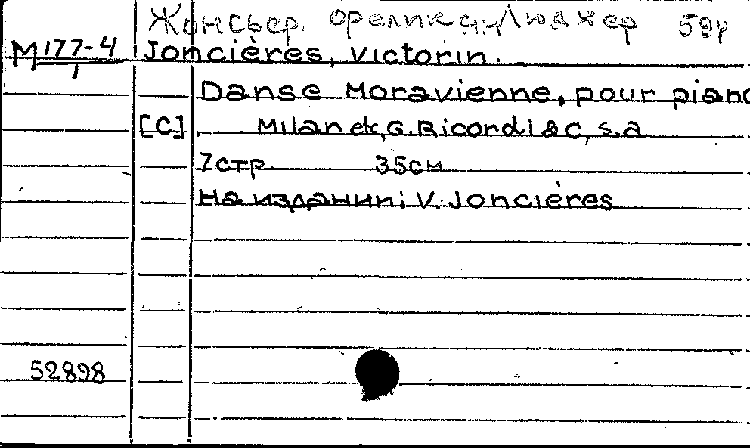 Жонсьер.
M 177-4 Joncières, Victorin.
1
Danse Moravienne, pour piano
[C] Milan etc, G. Ricordi & C, s.a
7 стр. 35см
На издании: V. Joncières
52898